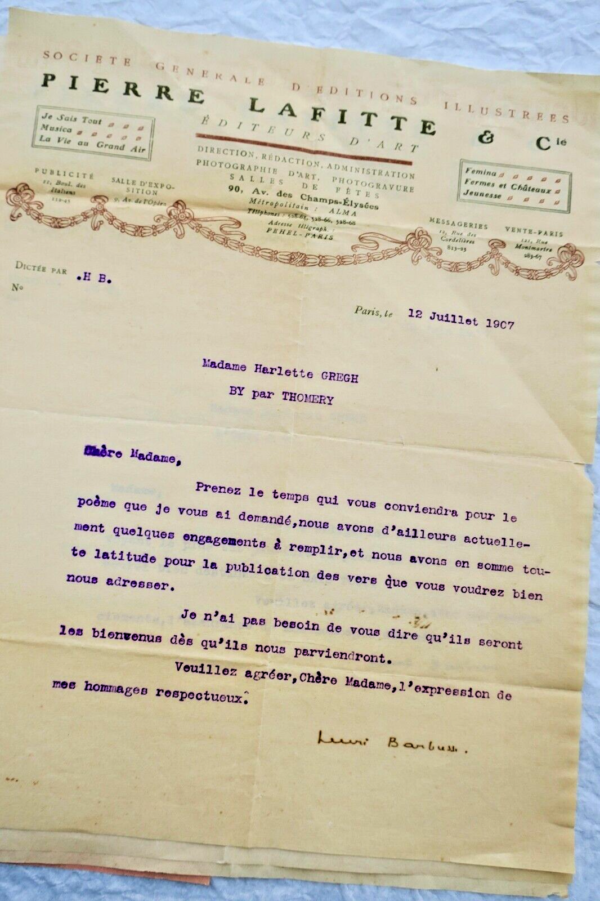 SOCIÉTÉ GÉNÉRALE D'ÉDITIONS ILLUSTRÉES
PIERRE LAFITTE & Cie
ÉDITEURS D'ART
Je Sais Tout
Musica
La Vie au Grand Air
DIRECTION, RÉDACTION, ADMINISTRATION
PHOTOGRAPHIE D'ART, PHOTOGRAVURE
SALLES DE FÊTES
90, Av. des Champs-Élysées
Métropolitain : ALMA
Téléphones
Adresse Télégraph
PEHEL-PARIS
Femina
Fermes et Châteaux
Jeunesse
PUBLICITÉ
Boul. des
Italiens
SALLE D'EXPO-
SITION
Av. de l'Opéra
MESSAGERIES
Rue des
Cordelières
VENTE-PARIS
Rue
Montmartre
DICTÉE PAR .H B.
No
Paris, le 12 Juillet 1907
Madame Harlette GREGH
BY par THOMERY
Chère Madame,
Prenez le temps qui vous conviendra pour le
poème que je vous ai demandé,nous avons d'ailleurs actuelle-
ment quelques engagements à remplir,et nous avons en somme tou-
te latitude pour la publication des vers que vous voudrez bien
nous adresser.
Je n'ai pas besoin de vous dire qu'ils seront
les bienvenus dès qu'ils nous parviendront.
Veuillez agréer,Chère Madame,l'expression de
mes hommages respectueux.
Henri Barbusse.